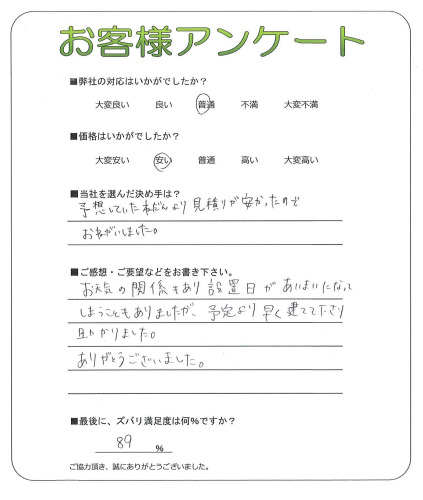 お客様アンケート
■弊社の対応はいかがでしたか?
大変良い 良い 普通 不満 大変不満
■価格はいかがでしたか?
大変安い 安い 普通 高い 大変高い
■当社を選んだ決め手は?
予想していたねだんより見積りが安かったので
おねがいしました。
■ご感想・ご要望などをお書き下さい。
お天気の関係もあり設置日があいまいになって
しまうこともありましたが、予定より早く建てて下さり
助かりました。
ありがとうございました。
■最後に、ズバリ満足度は何%ですか?
89 %
ご協力頂き、誠にありがとうございました。